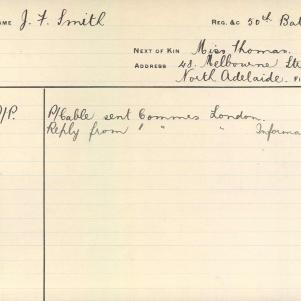 NAME J. F. Smith REG. &C 50th Bat
NEXT OF KIN Miss Thomas.
ADDRESS 48. Melbourne Ste
North Adelaide.
/P. P/Cable sent Commrs London.
Reply from " " " Informa